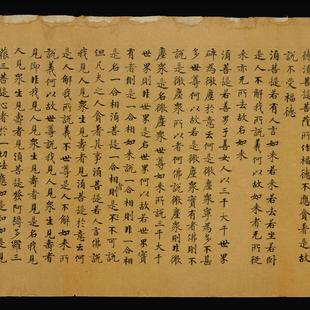 德須菩提菩薩所作福德不應貪著是故
說不受福德
須菩提若有人言如来若来若去若坐若卧
是人不解我所說義何以故如来者无所從
来亦无所去故名如来
須菩提若善男子善女人以三千大千世界
碎為微塵於意云何是微塵衆寧為多不甚
多世尊何以故若是微塵衆實有者佛則不
說是微塵衆所以者何佛說微塵衆則非微
塵衆是名微塵衆世尊如来所說三千大千
世界則非世界是名世界何以故若世界實
有者則是一合相如来說一合相則非一合相
是名一合相須菩提一合相者則是不可說
但凡夫之人貪著其事須菩提若人言佛說
我見人見衆生見壽者見須菩提於意云何
是人解我所說義不世尊是人不解如来所
說義何以故世尊說我見人見衆生見壽者
見即非我見人見衆生見壽者見是名我見
人見衆生見壽者見須菩提發阿耨多羅三
藐三菩提心者於一切法應如是知如是見